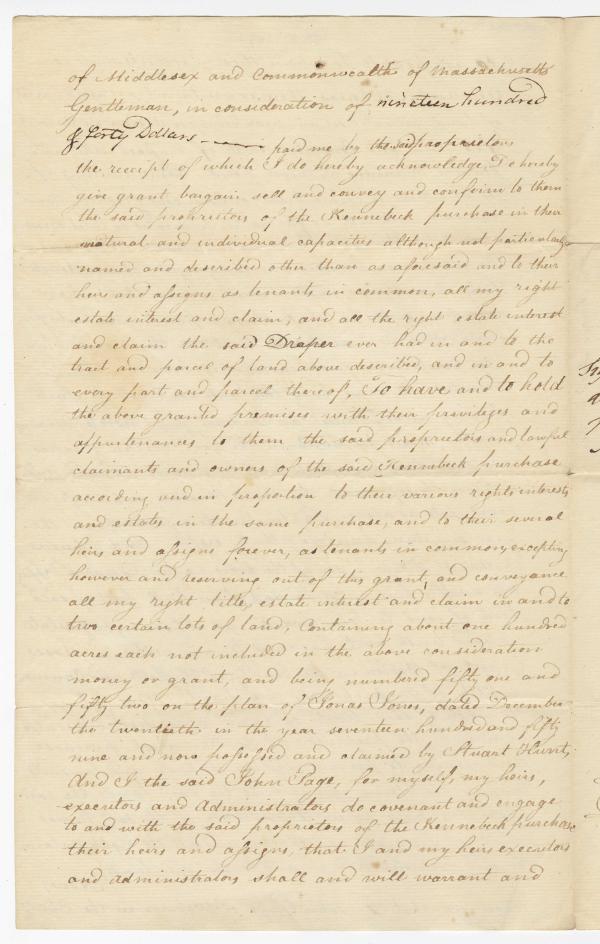 of Middlesex and Commonwealth of Massachusetts
Gentleman, in consideration of nineteen hundred
& forty Dollars ——— paid me by the said proprietors
the receipt of which I do hereby acknowledge, Do hereby
give grant bargain sell and convey and confirm to them
the said proprietors of the Kennebeck purchase in their
natural and individual capacities although not particularly
named and described other than as aforesaid and to their
heirs and assigns as tenants in common, all my right
estate interest and claim, and all the right estate interest
and claim the said Draper ever had in and to the
tract and parcel of land above described, and in and to
every part and parcel thereof, To have and to hold
the above granted premises with their priviledges and
appurtenances to them the said proprietors and lawful
claimants and owners of the said Kennebeck purchase
according and in proportion to their various rights interests
and estates in the same purchase, and to their several
heirs and assigns forever, as tenants in common, excepting
however and reserving out of this grant, and conveyance
all my right, title, estate interest and claim in and to
two certain lots of land, Containing about one hundred
acres each not included in the above consideration
money or grant, and being numbered fifty one and
fifty two on the plan of Jonas Jones, dated December
the twentieth in the year seventeen hundred and fifty
nine and now possessed and claimed by Stuart
And I the said John Page, for myself, my heirs,
executors and Administrators do covenant and engage
to and with the said proprietors of the Kennebeck purchase
their heirs and assigns, that I and my heirs executors
and administrators shall and will warrant and